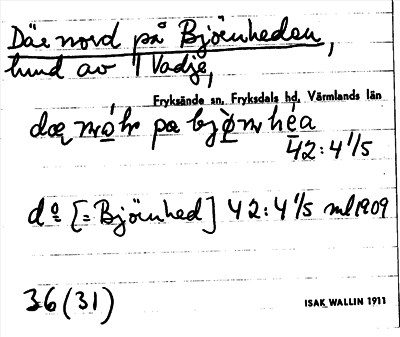 Där nord på Björnheden,
hund av Vadje,
Fryksände sn, Fryksdals hd, Värmlands län
dæ på
42:4 1/5
do [= Björnhed] 42:4 1/5 ml 1909
36 (31)
ISAK WALLIN 1911